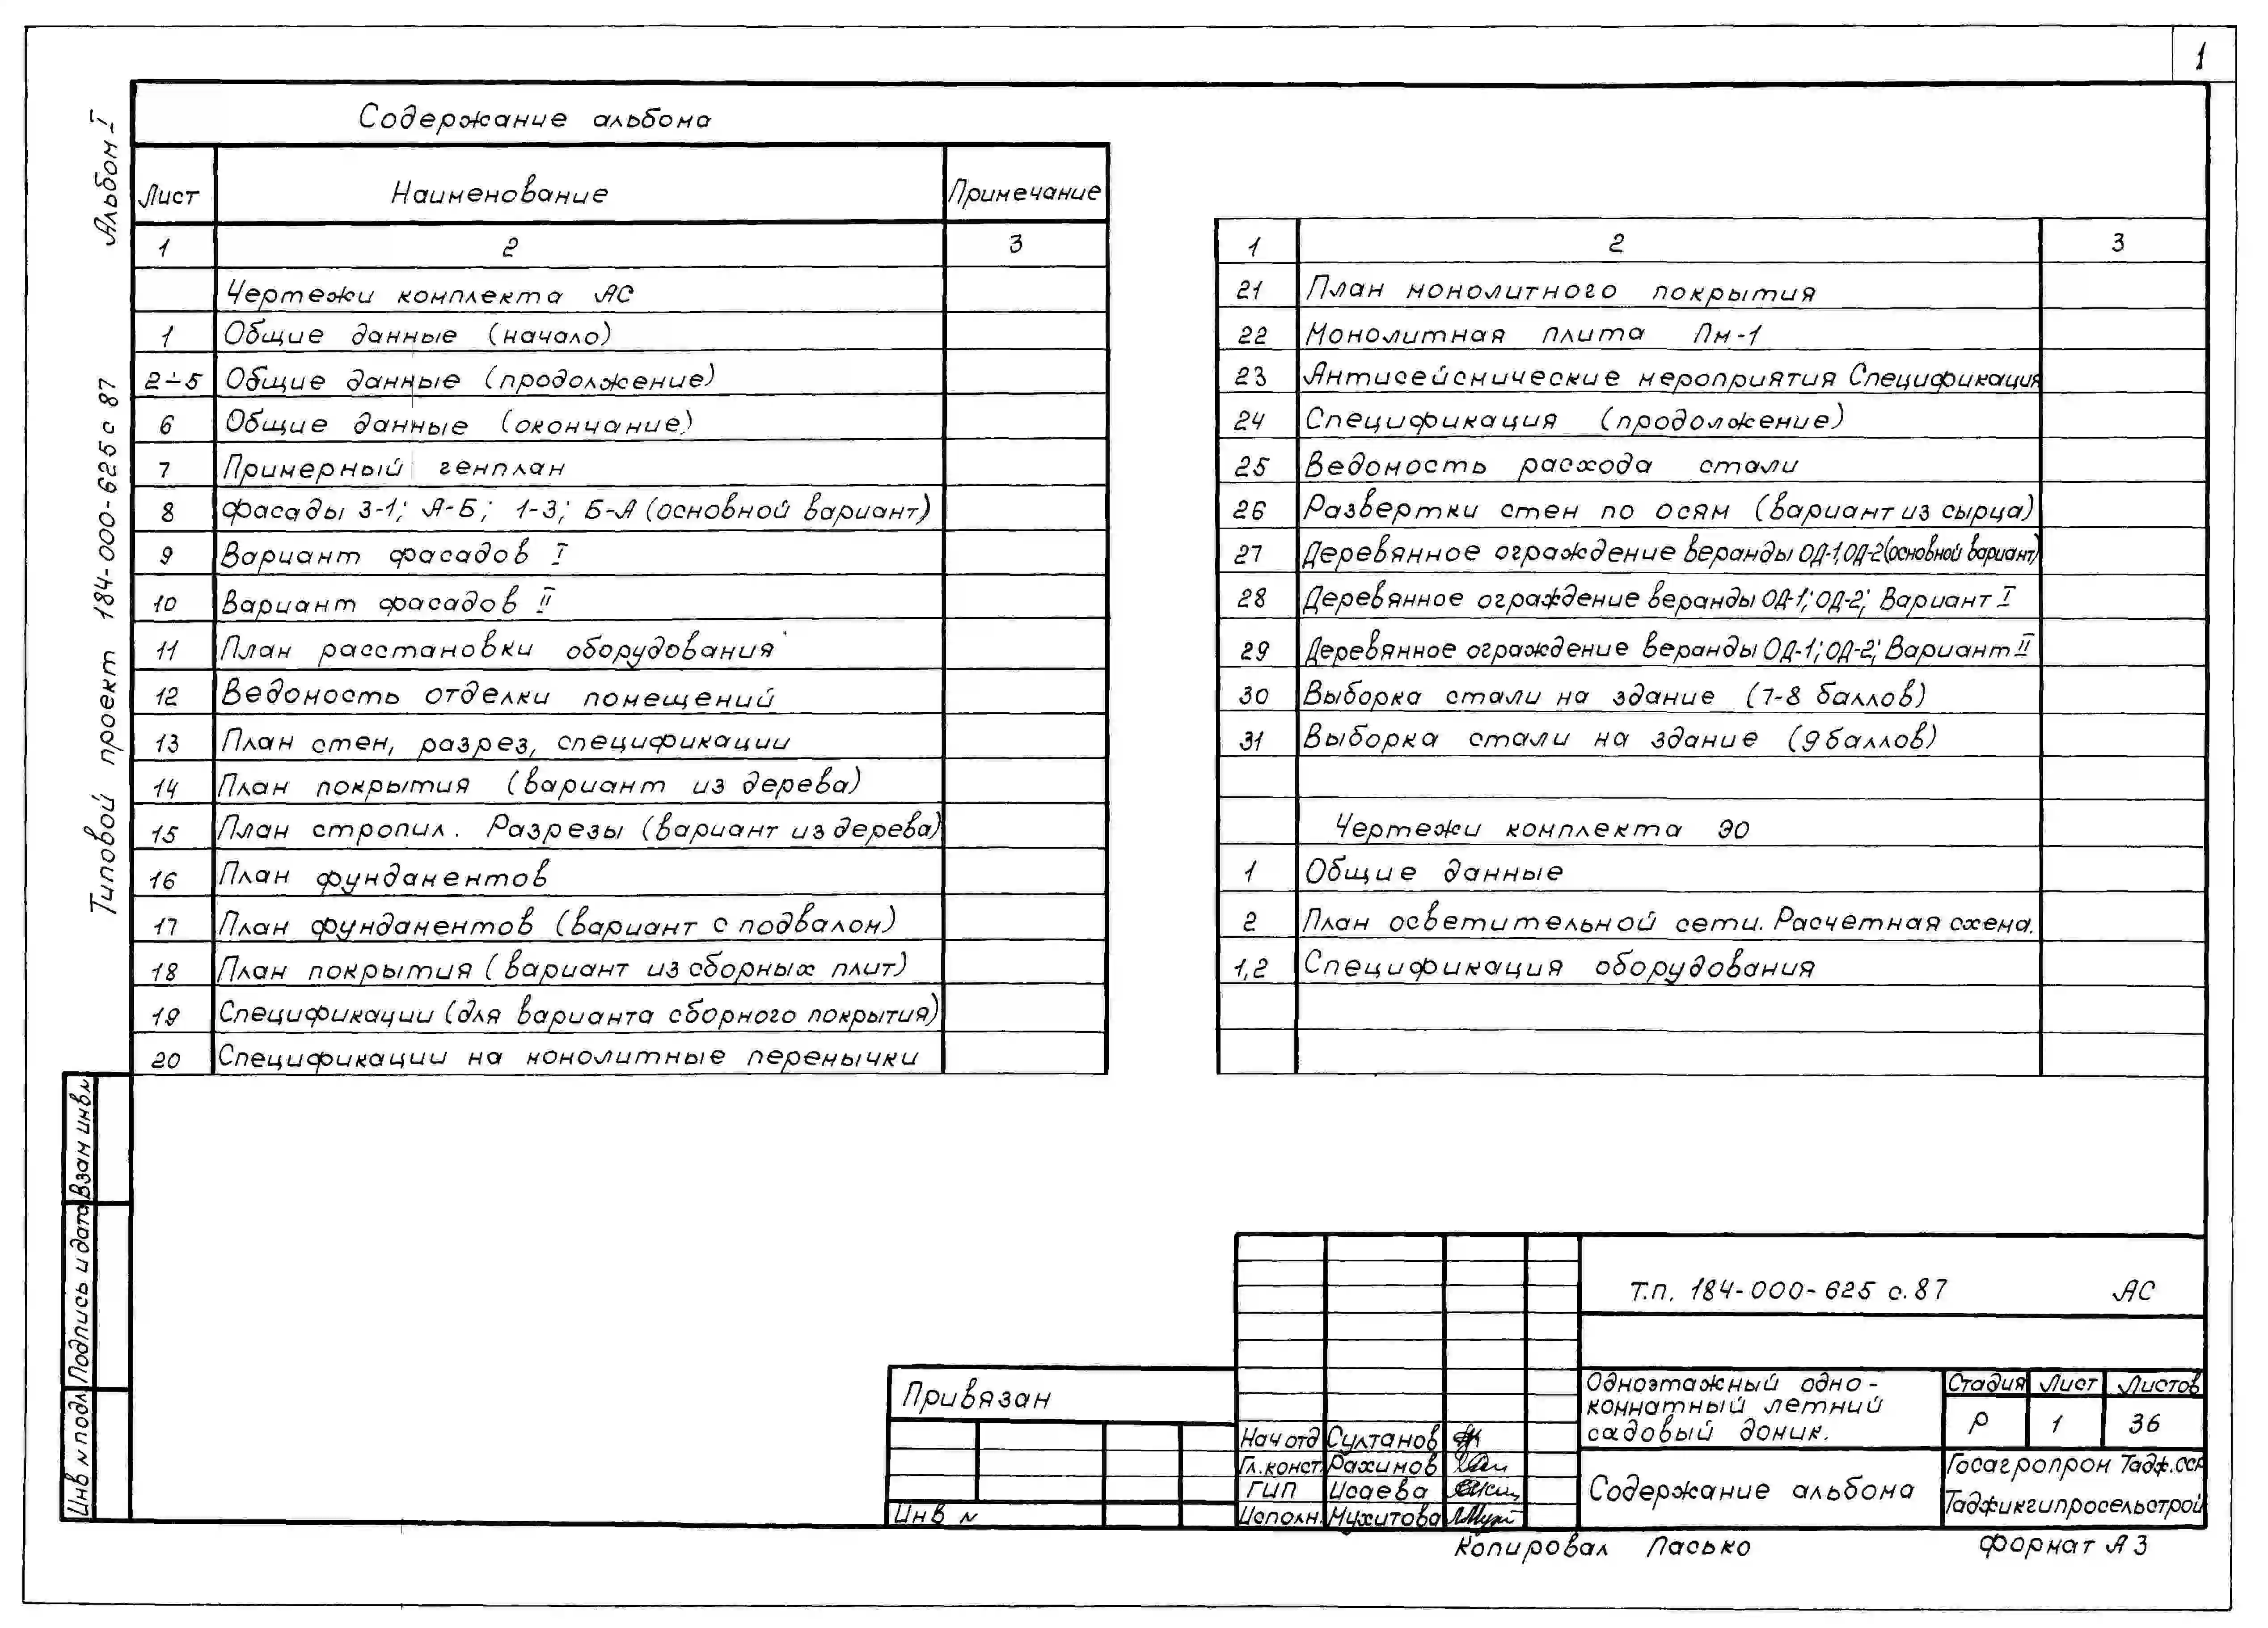 1
Альбом I
Типовой проект 184-000-625 с 87
Содержание альбома
Лист Наименование Примечание
1 2 3
Чертежи комплекта АС
1 Общие данные (начало)
2÷5 Общие данные (продолжение)
6 Общие данные (окончание)
7 Примерный генплан
8 Фасады 3-1; А-Б; 1-3; Б-А (основной вариант)
9 Вариант фасадов I
10 Вариант фасадов II
11 План расстановки оборудования
12 Ведомость отделки помещений
13 План стен, разрез, спецификации
14 План покрытия (вариант из дерева)
15 План стропил. Разрезы (вариант из дерева)
16 План фундаментов
17 План фундаментов (вариант с подвалом)
18 План покрытия (вариант из сборных плит)
19 Спецификации (для варианта сборного покрытия)
20 Спецификации на монолитные перемычки
1 2 3
21 План монолитного покрытия
22 Монолитная плита Пм-1
23 Антисейсмические мероприятия Спецификация
24 Спецификация (продолжение)
25 Ведомость расхода стали
26 Развертки стен по осям (вариант из сырца)
27 Деревянное ограждение веранды ОД-1, ОД-2 (основной вариант)
28 Деревянное ограждение веранды ОД-1; ОД-2; Вариант I
29 Деревянное ограждение веранды ОД-1; ОД-2; Вариант II
30 Выборка стали на здание (7-8 баллов)
31 Выборка стали на здание (9 баллов)
Чертежи комплекта ЭО
1 Общие данные
2 План осветительной сети. Расчетная схема.
1,2 Спецификация оборудования
Взам инв №
Подпись и дата
Инв № подл
Привязан
Инв №
Т.п. 184-000-625 с.87 АС
Одноэтажный одно-
комнатный летний
садовый домик.
Стадия Лист Листов
Р 1 36
Нач отд Султанов
Гл. конст. Рахимов
ГИП Исаева
Исполн. Мухитова
Содержание альбома
Госагропром Тадж. ССР
Таджикгипросельстрой
Копировал Пасько
Формат А3